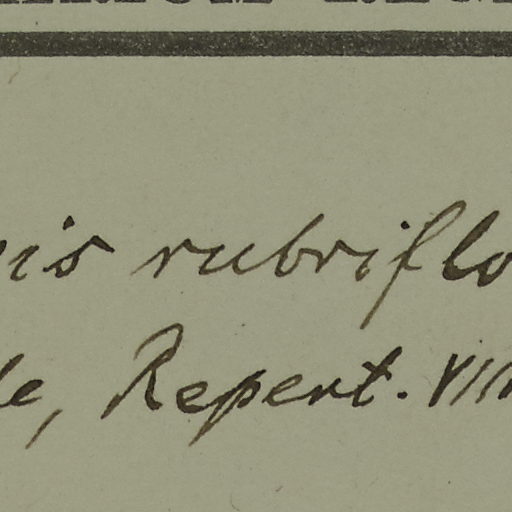 is rubriflo
le, Repert. VIII